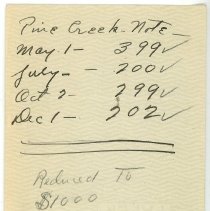 Pine Creek Note
May 1 - 399✓
July - 200✓
Oct 2 - 299✓
Dec 1 - 202✓
Reduced To
$1000